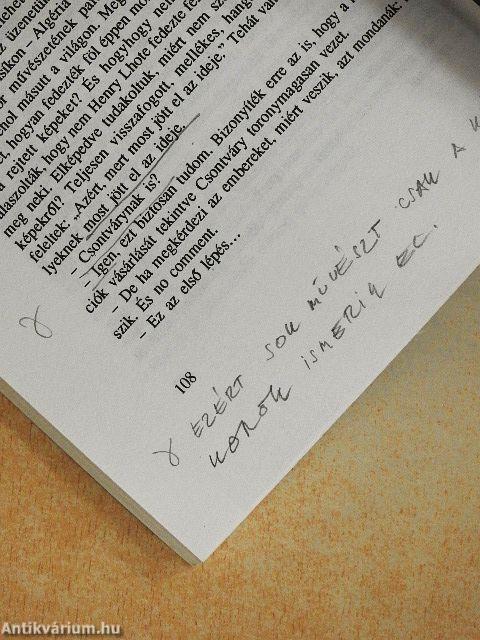 üzenetük
síkon - Algéria
or művészetének
hol másutt a világon. Meg
et, hogyan fedezték föl éppen mo
a rejtett képeket? És hogyhogy ne
laszolták, hogy nem Henry Lhote fedezte fe
meg neki. Elképedve tudakoltuk, miért nem sz
képekről? Teljesen visszafogott, mellékes, hang
feleltek: „Azért, mert most jött el az ideje.” Tehát van
lyeknek most jött el az ideje.
- Csontvárynak is?
- Igen, ezt biztosan tudom. Bizonyíték erre az is, hogy a
ciók vásárlását tekintve Csontváry toronymagasan vezet.
- De ha megkérdezi az embereket, miért veszik, azt mondanák:
szik. És no comment.
- Ez az első lépés...
108
EZÉRT SOK MŰVÉSZT CSAK A K
KOROK ISMERIK EL.
Antikvárium.hu